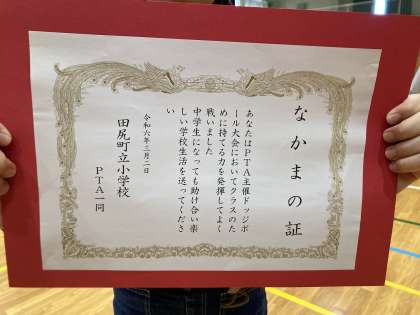 なかまの証
あなたはＰＴＡ主催ドッジボ
ール大会においてクラスのた
めに持てる力を発揮してよく
戦いました
中学生になっても助け合い楽
しい学校生活を送ってくださ
い
令和六年三月二日
田尻町立小学校
ＰＴＡ一同